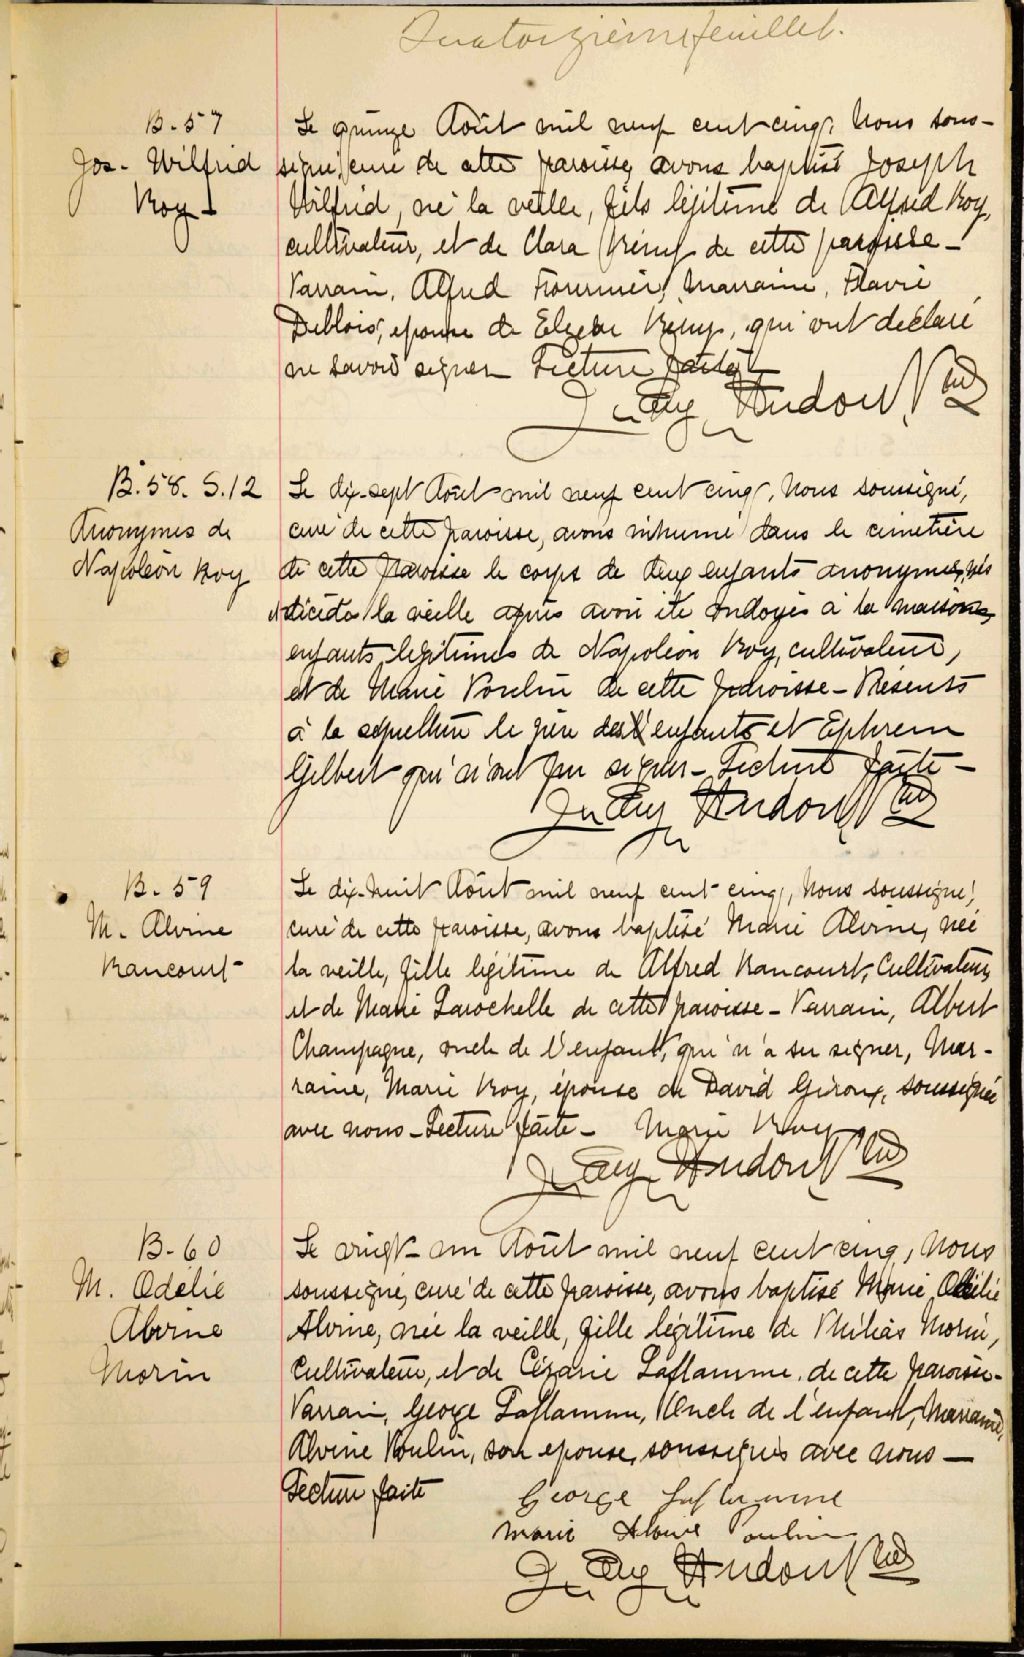 Quatorzième feuillet.
B-57
Jos- Wilfrid
Roy-
Le quinze Août mil neuf cent cinq, Nous sous-
signé, curé de cette paroisse, avons baptisé Joseph
Wilfrid, né la veille, fils légitime de Alfred Roy,
cultivateur, et de Clara Rémy de cette paroisse-
Parrain, Alfred Fournier, Marraine, Flavie
Deblois, épouse de Elzéar Rémy, qui ont déclaré
ne savoir signer Lecture faite
J. Eug Hudon Ptre
B.58. S.12
Anonymes de
Napoléon Roy
Le dix-sept Août mil neuf cent cinq, Nous soussigné,
curé de cette paroisse, avons inhumé dans le cimetière
de cette paroisse le corps de deux enfants anonymes, nés
et décédés la veille après avoir été ondoyés à la maison,
enfants légitimes de Napoléon Roy, cultivateur,
et de Marie Poulin de cette paroisse- Présents
à la sépulture le père des enfants et Ephrem
Gilbert qui n'ont pu signer- Lecture faite-
J. Eug Hudon Ptre
B- 59
M. Alvine
Rancourt-
Le dix-huit Août mil neuf cent cinq, Nous soussigné,
curé de cette paroisse, avons baptisé Marie Alvine, née
la veille, fille légitime de Alfred Rancourt, Cultivateur,
et de Marie Larochelle de cette paroisse- Parrain, Albert
Champagne, oncle de l'enfant, qui n'a su signer, Mar-
raine, Marie Roy, épouse de David Giroux, soussignée
avec nous- Lecture faite- Marie Roy
J. Eug Hudon Ptre
B- 60
M. Odélie
Alvine
Morin
Le vingt-un Août mil neuf cent cinq, Nous
soussigné, curé de cette paroisse, avons baptisé Marie Odélie
Alvine, née la veille, fille légitime de Philias Morin,
Cultivateur, et de Cézarie Laflamme, de cette paroisse-
Parrain, George Laflamme, Oncle de l'enfant, Marraine,
Alvine Poulin, son épouse, soussignés avec nous-
Lecture faite George Laflamme
Marie Alvine Poulin
J. Eug Hudon Ptre